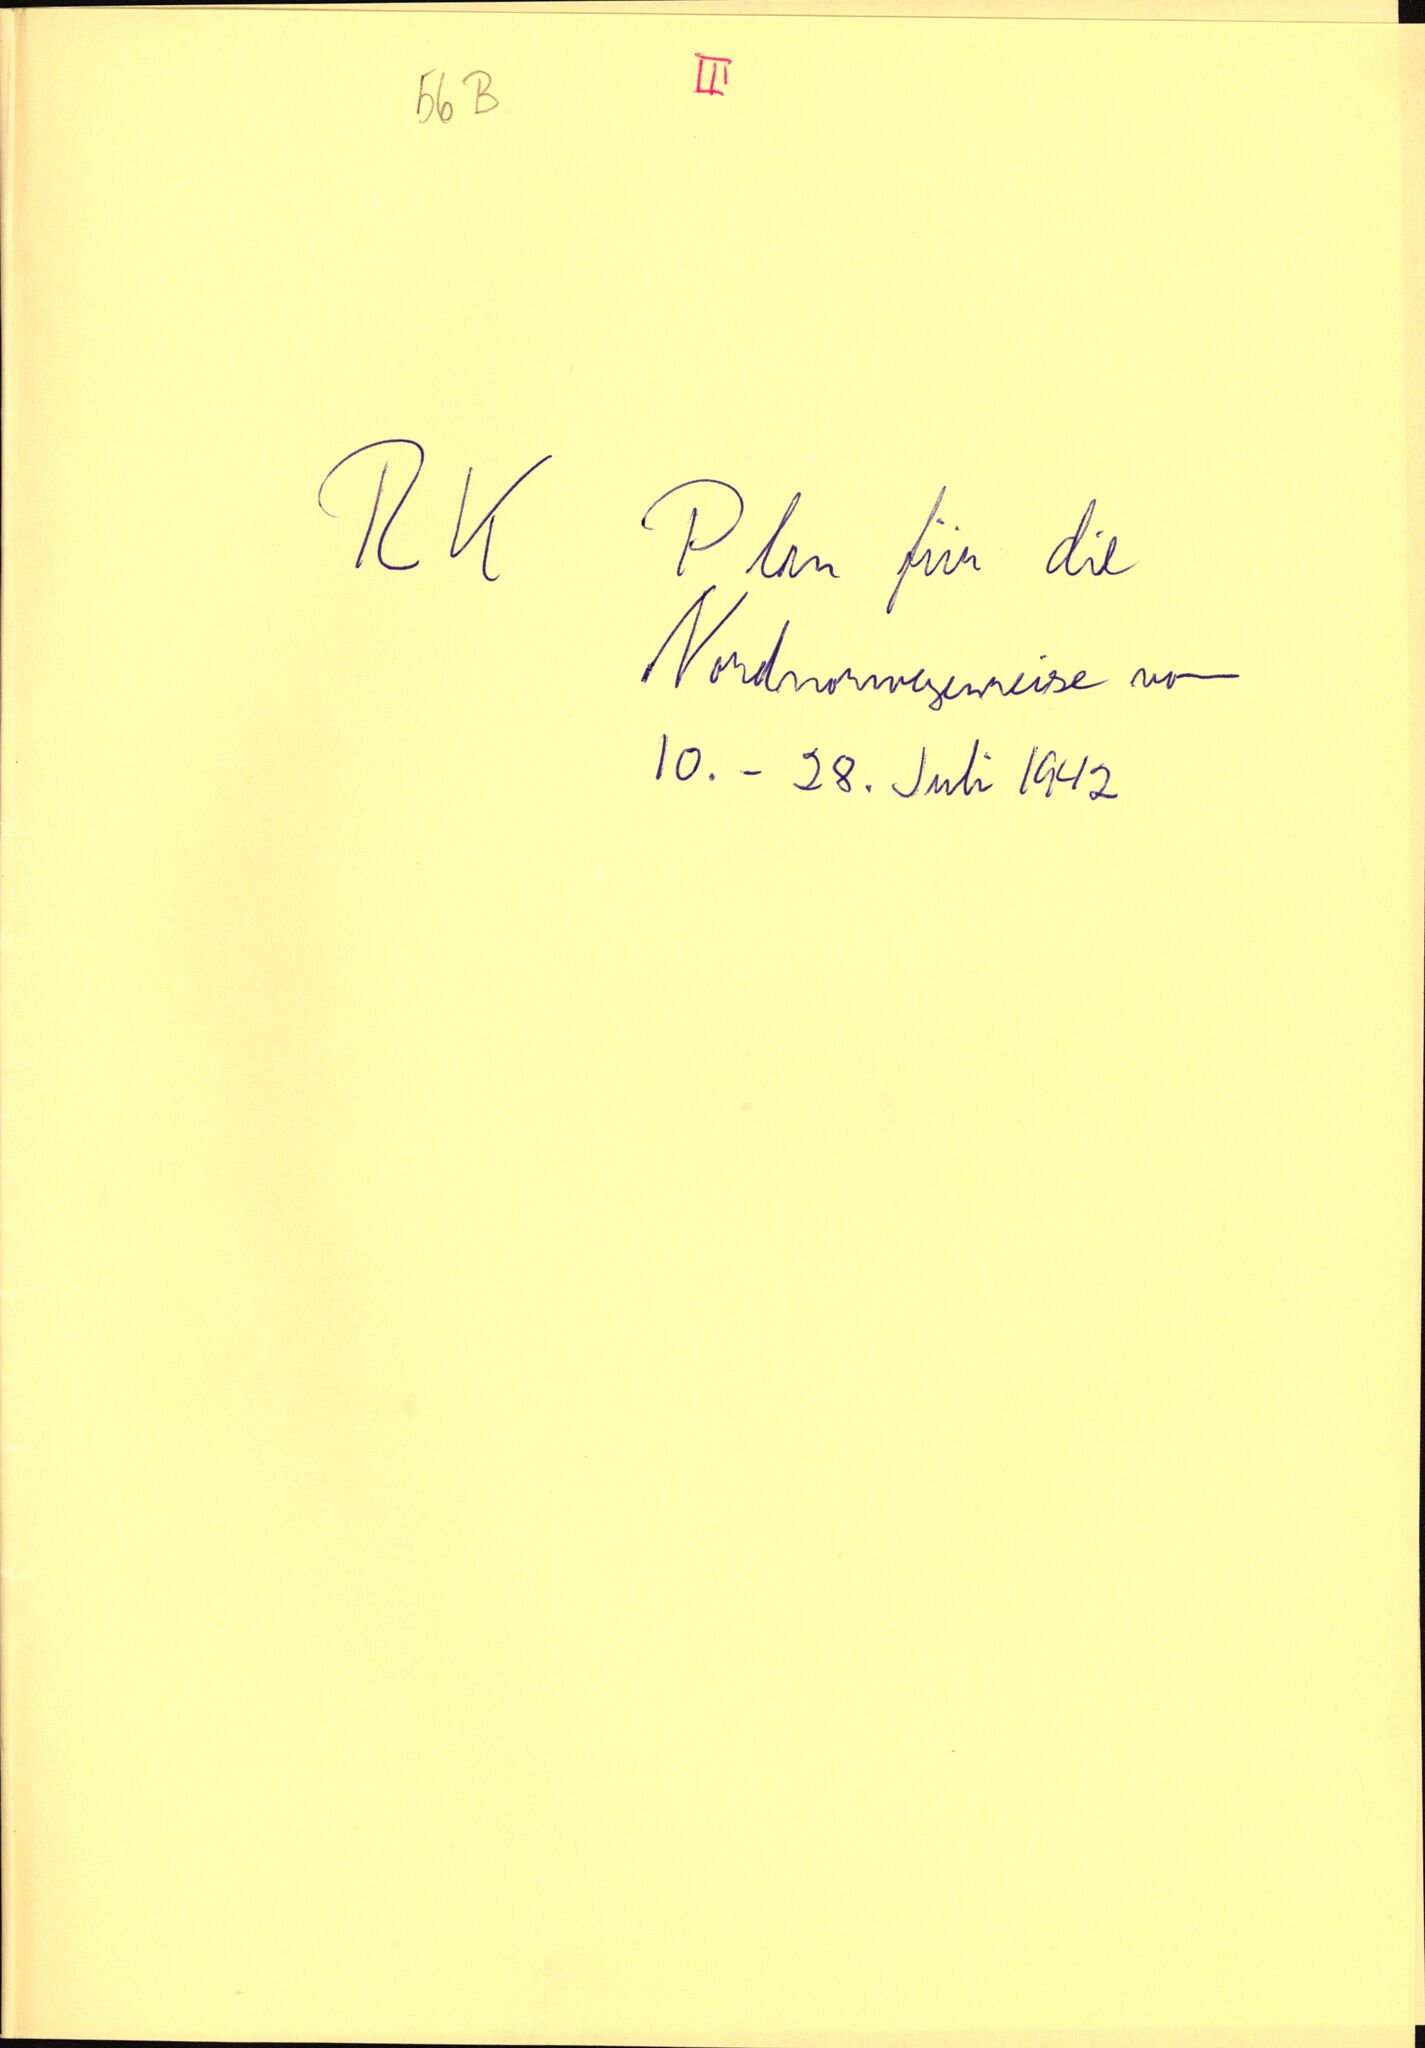 56 B
III
RK Plan für die
Nordnorwegenreise vom
10. - 28. Juli 1942